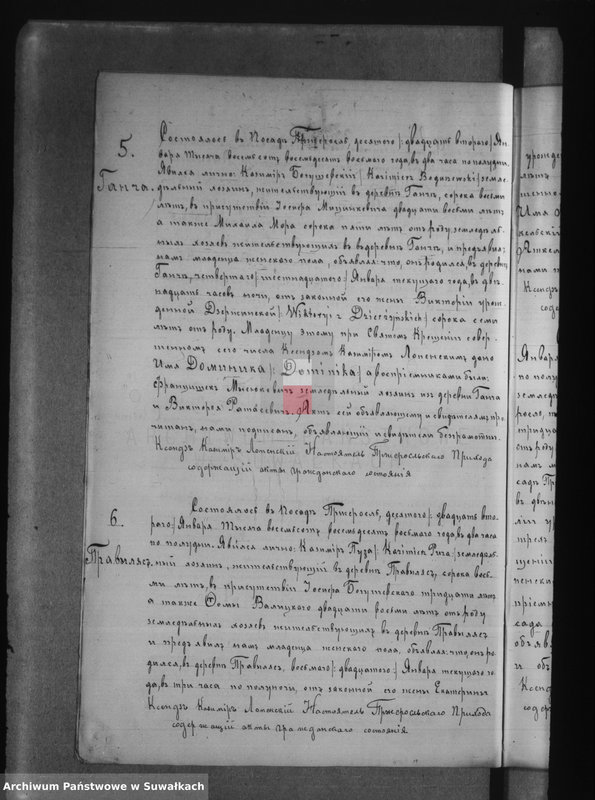 5.
Ганча.
Состоялось въ Посадѣ Пржеросль, десятого /: двадцать второго :/ Ян-
варя тысяча восемьсотъ восемьдесятъ восьмого года, въ два часа пополудни.
Явился лично: Казиміръ Богушевскій /: Kazimierz Boguszewski :/ земле-
дѣльный хозяинъ, жительствующій въ деревнѣ Ганчѣ, сорока восьми
лѣтъ, въ присутствіи Іосифа двадцати восьми лѣтъ
а также Михаила Мора сорока пяти лѣтъ отъ роду, земледѣль-
ныхъ хозяевъ жительствующихъ въ деревнѣ Ганчѣ, и предъявилъ
намъ младенца женского пола, объявляя: что, онъ родился, въ деревнѣ
Ганчѣ, четвертого /: шестнадцатого :/ Января текущего года, въ двѣ-
надцать часовъ ночи, отъ законной его жены Викторіи урож-
денной Дзержинской /: Wiktoryi z Dzierżyńskich :/ сорока семи
лѣтъ отъ роду. Младенцу этому при Святомъ Крещеніи совер-
шенномъ сего числа Ксендзомъ Казиміромъ Лопенскимъ дано
имя Доминика /: Dominika :/ а воспріемниками были:
Францишекъ земледѣльный хозяинъ изъ деревни Ганча
и Викторія Ратасевичъ. Актъ сей объявляющему и свидѣтелямъ про-
читанъ, нами подписанъ, объявляющій и свидѣтели безграмотны.
Ксендзъ Казиміръ Лопенскій Настоятель Пржеросльского Прихода
содержащій акты гражданского состоянія
6.
Правыляс.
Состоялось въ Посадѣ Пржеросль, десятого /: двадцать вто-
рого :/ Января тысяча восемьсотъ восемьдесятъ восьмого года, въ два часа
по полудни. Явился лично: Казиміръ Пуза /: Kazimierz Puza :/ земледѣль-
ный хозяинъ, жительствующій въ деревнѣ Правылясъ, сорока восьм-
ми лѣтъ, въ присутствіи Іосифа Богушевского тридцати лѣтъ
а также Фомы Валицкого двадцати восьми лѣтъ отъ роду
земледѣльныхъ хозяевъ жительствующихъ въ деревнѣ Правылясъ
и предъявилъ намъ младенца женского пола, объявляя: что, онъ ро-
дился, въ деревнѣ Правылясъ, восьмого /: двадцатого :/ Января текущего го-
да, въ три часа по полуночи, отъ законной его жены Екатерины
Ксендзъ Казиміръ Лопенскій Настоятель Пржеросльского Прихода
содержащій акты гражданского состоянія
Archiwum Państwowe w Suwałkach